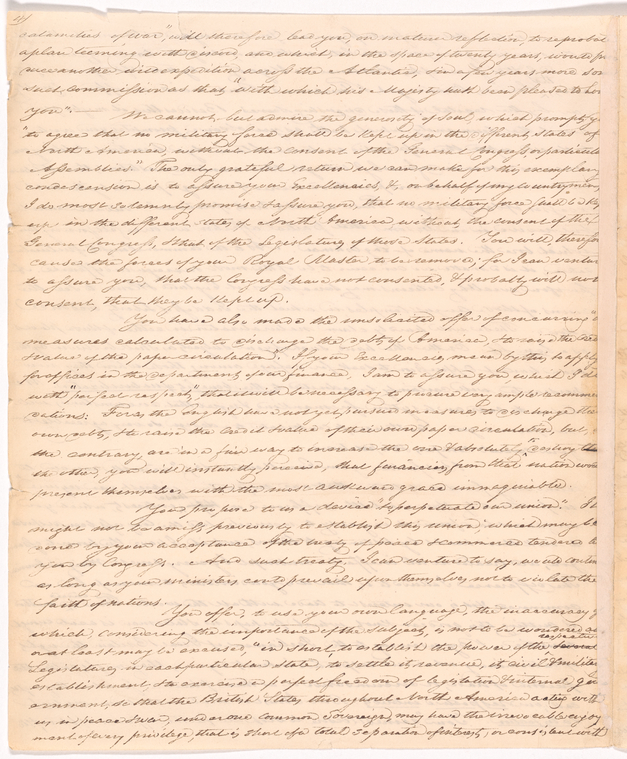 calamities of war", will therefore lead you, on mature reflection, to reprobat
a plan teeming with discord, and which, in the space of twenty years, would pr
duce another wild expedition across the Atlantic, & in a few years more som
such commission as that with which his Majesty hath been pleased to hon
you".— We cannot but admire the generosity of soul, which prompts y
"to agree that no military force shall be kept up in the different States of
North America, without the consent of the General Congress, or particular
Assemblies." The only grateful return we can make for this exemplary
condescension, is to assure your Excellencies, &, on behalf of my Countrymen,
I do most solemnly promise & assure you, that no military force shall be kept
up, in the different states of North America without the consent of the
General Congress, & that of the Legislatures of those States. You will therefore
cause the forces of your Royal Master to be removed; for I can venture
to assure you, that the Congress have not consented, & probably will not
consent, that they be kept up.
You have also made the unsolicited offer of concurring "in
measures calculated to discharge the debts of America, & to raise the cred
& value of the paper circulation". If your Excellencies mean by this, to apply
for offices in the department of our finance, I am to assure you which I do
with "perfect respect," that it will be necessary to procure very ample recommen
dations: For as the English have not yet pursued measures to discharge their
own debts, & to raise the credit & value of their own paper circulation, but, on
the contrary, are in a fair way to increase the one & absolutely destroy
the other, you will instantly perceive, that financiers from that nation would
present themselves with the most awkward grace imaginable.
You propose to us a device "to perpetuate our union". It
might not be amiss, previously to establish this union; which may be
done by your acceptance of the treaty of peace & commerce tendered to
you by Congress. And such treaty, I can venture to say, would continue
as long as your ministers could prevail upon themselves not to violate the
faith of nations.
You offer, to use your own language, the inaccuracy of
which, considering the importance of the subject, is not to be wondered at
or at least may be excused, "in short, to establish the power of the respective
Legislatures, in each particular state, to settle its revenue, its civil & military
establishment & to exercise a perfect freedom of legislation & internal gov
ernment, so that the British States throughout North America acting with
us in peace & war, under one common Sovereign, may have the irrevocable enjoy
ment of every privilege, that is short of a total separation of interest, or consistent with